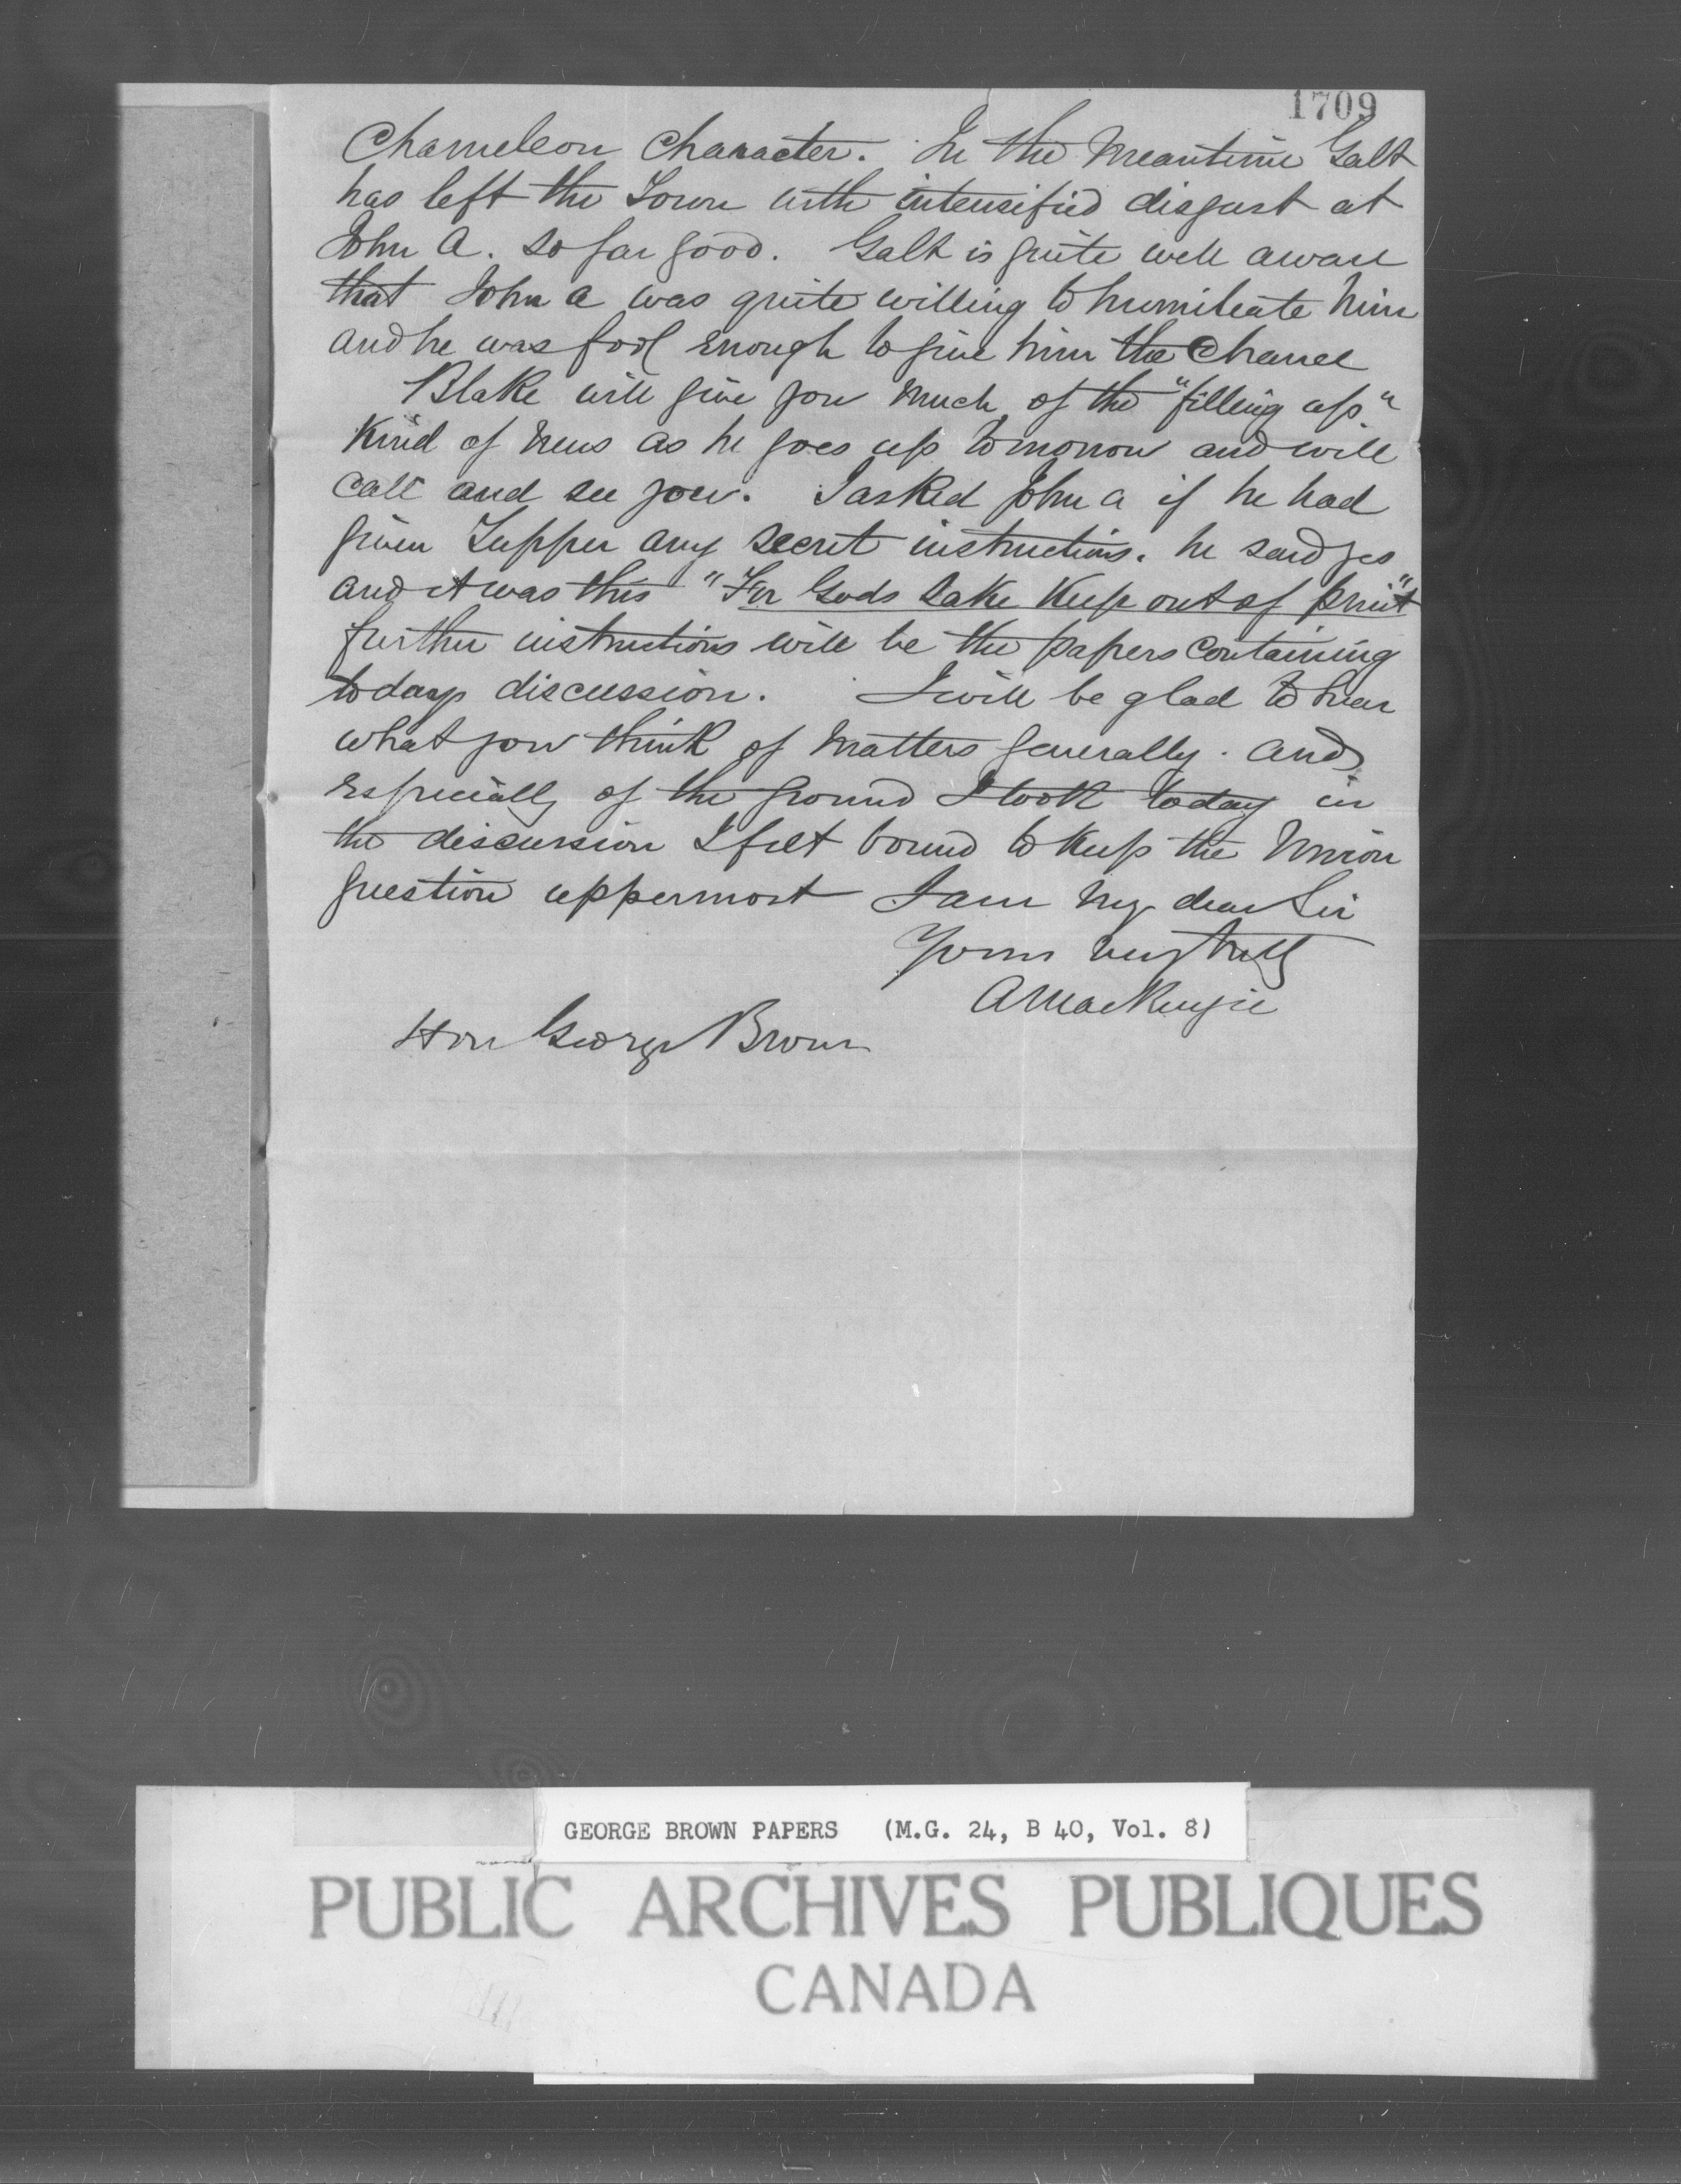 1709
Chameleon Character. In the Meantime Galt
has left the Town with intensified disgust at
John A. So far good. Galt is quite well aware
that John A was quite willing to humiliate him
and he was fool enough to give him the Chance
Blake will give you much of the "filling up"
kind of news as he goes up tomorrow and will
call and see you. I asked John A if he had
given Tupper any secret instructions. he said yes
and it was this "For Gods Sake Keep out of print"
further instructions will be the papers containing
todays discussion. I will be glad to hear
what you think of matters generally. and
Especially of the ground I took today in
the discussion I felt bound to keep the Union
question uppermost I am My dear Sir
Yours very truly
A MacKenzie
Hon George Brown
GEORGE BROWN PAPERS (M.G. 24, B 40, Vol. 8)
PUBLIC ARCHIVES PUBLIQUES
CANADA